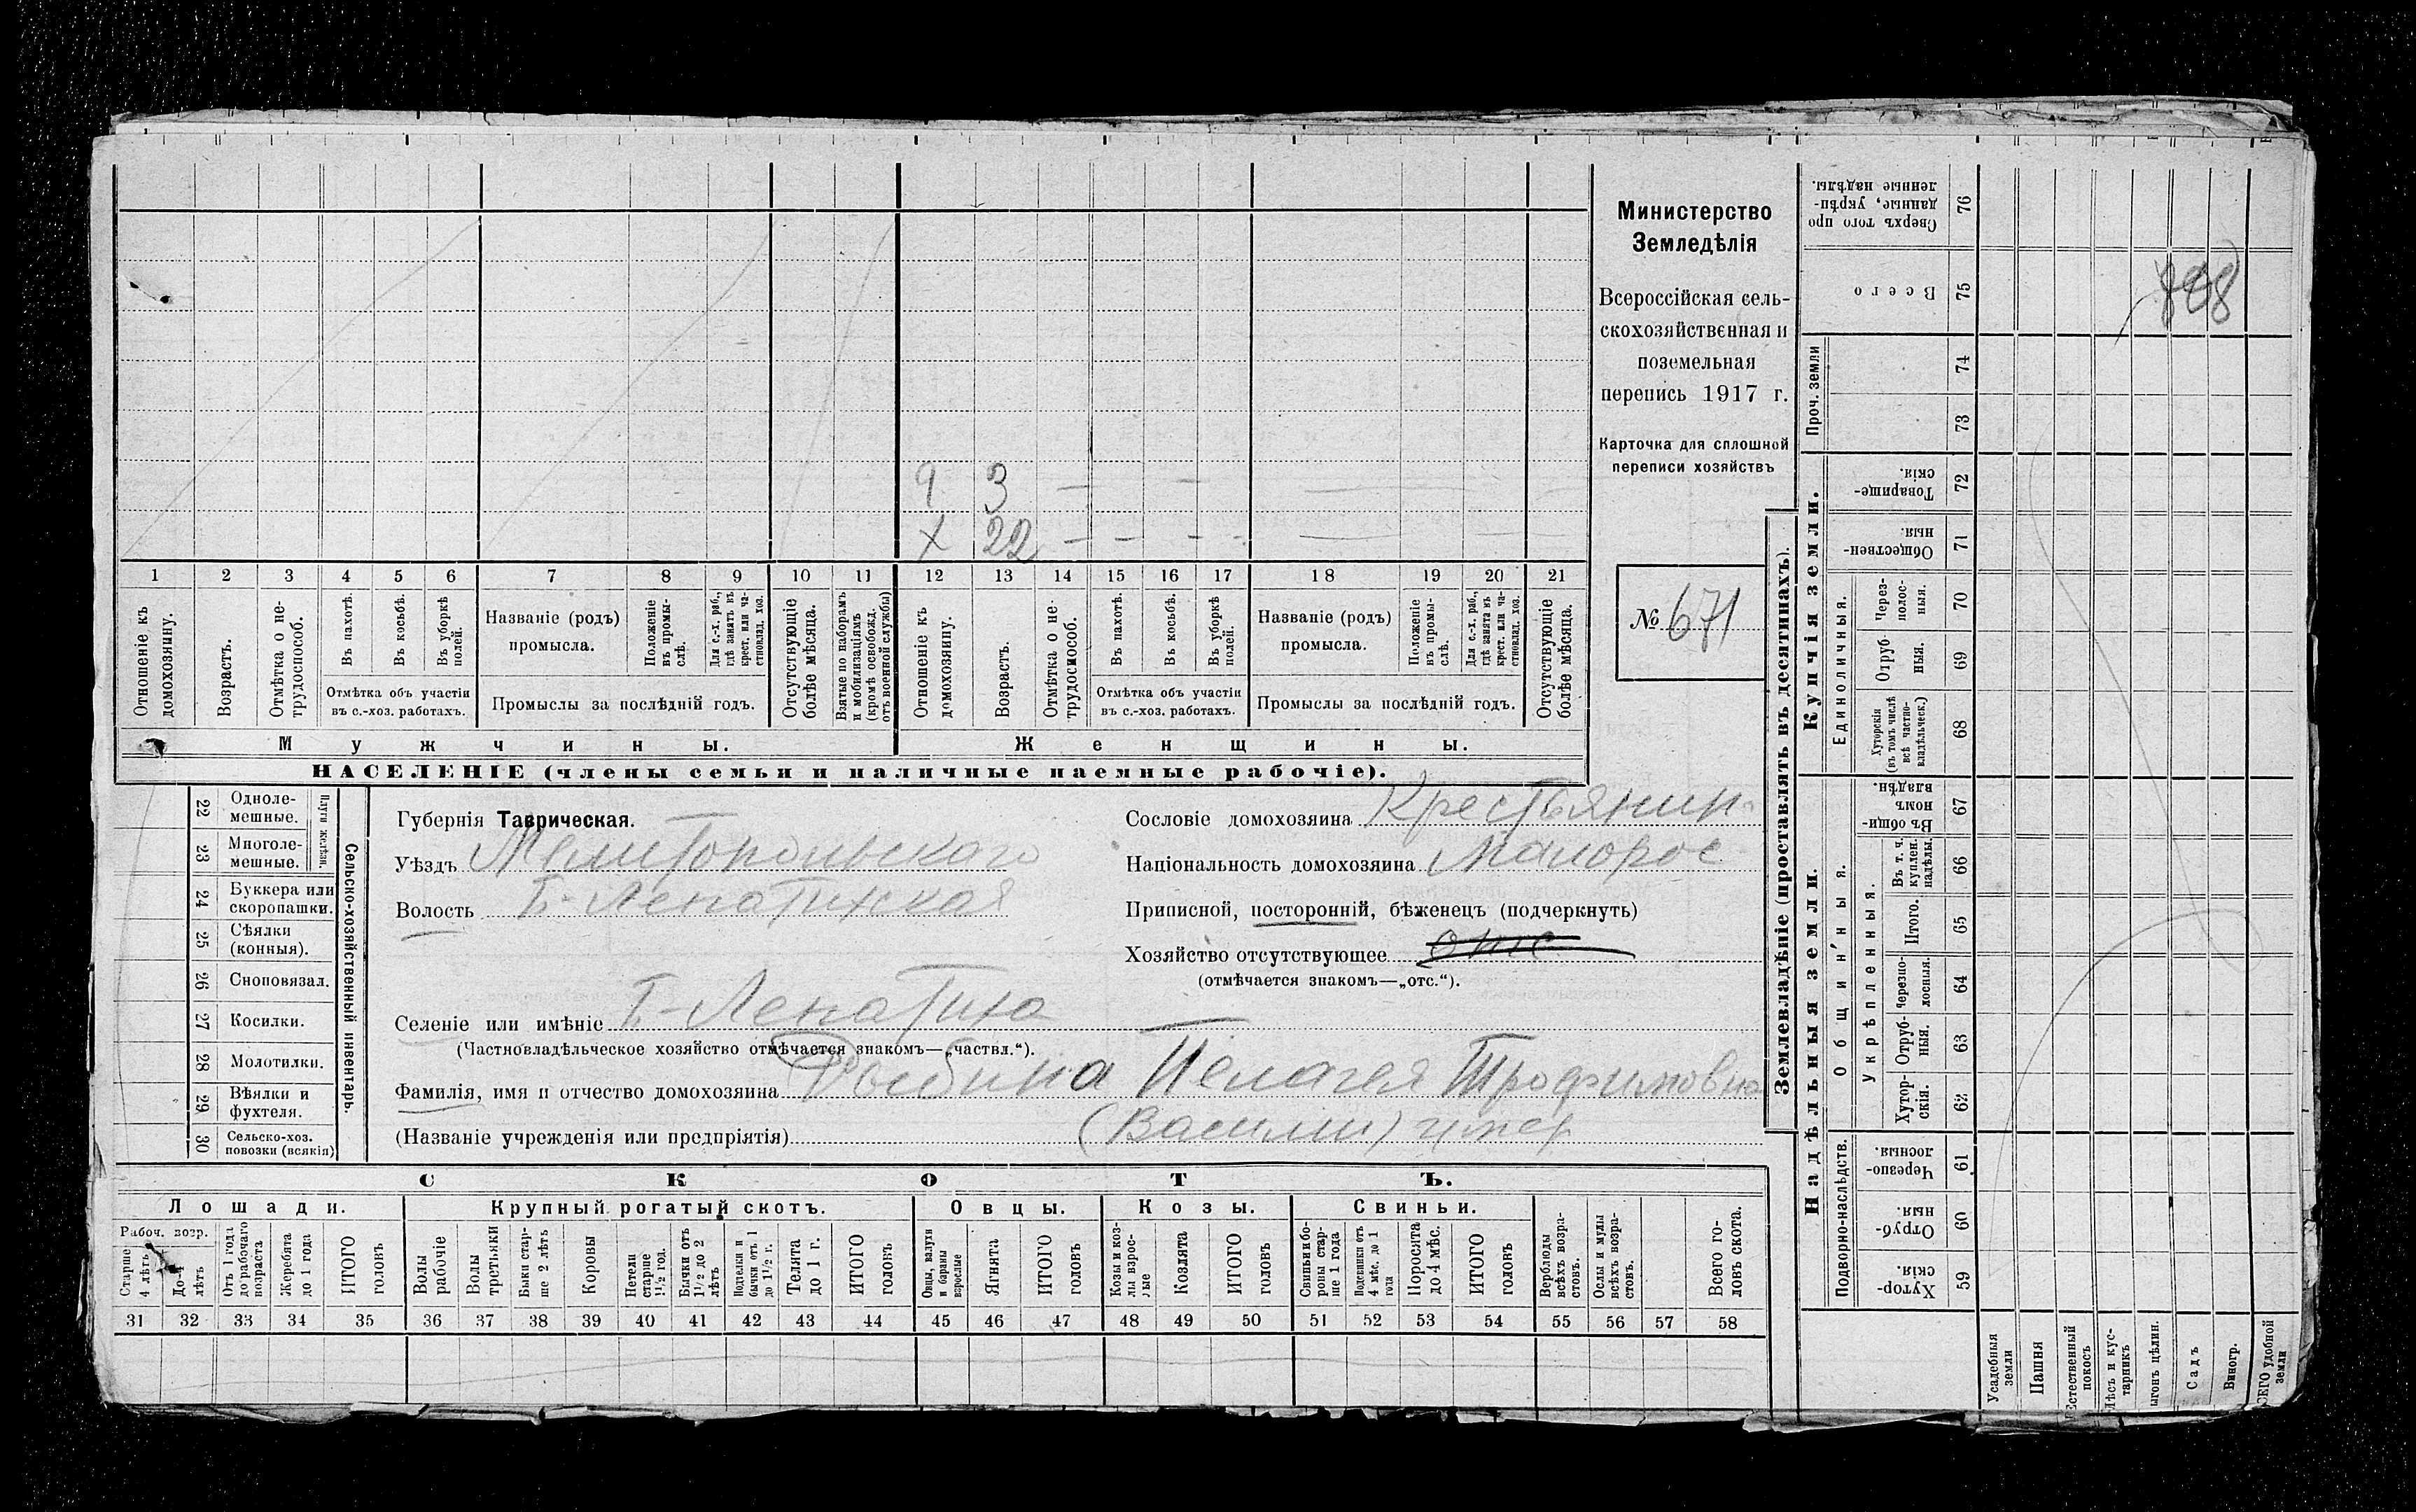 9 3 — — —
X 22 — — — — — —
1 2 3 4 5 6 7 8 9 10 11 12 13 14 15 16 17 18 19 20 21
Отношеніе къ домохозяину.
Возрастъ.
Отмѣтка о не-трудоспособ.
Въ пахотѣ.
Въ косьбѣ.
Въ уборкѣ полей.
Отмѣтка объ участіи
въ с.-хоз. работахъ.
Названіе (родъ)
промысла.
Положеніе въ промы-слѣ.
Для с.-х. раб., гдѣ занятъ въ крест. или ча-стновлад. хоз.
Промыслы за послѣдній годъ.
Отсутствующіе болѣе мѣсяца.
Взятые по наборамъ и мобилизаціямъ (кромѣ освобожд. отъ военной службы)
Отношеніе къ домохозяину.
Возрастъ.
Отмѣтка о не-трудоспособ.
Въ пахотѣ.
Въ косьбѣ.
Въ уборкѣ полей.
Отмѣтка объ участіи
въ с.-хоз. работахъ.
Названіе (родъ)
промысла.
Положеніе въ промы-слѣ.
Для с.-х. раб., гдѣ занята въ крест. или ча-стновлад. хоз.
Промыслы за послѣдній годъ.
Отсутствующіе болѣе мѣсяца.
Мужчины. Женщины.
НАСЕЛЕНІЕ (члены семьи и наличные наемные рабочіе).
Министерство
Земледѣлія
Всероссійская сель-
скохозяйственная и
поземельная
перепись 1917 г.
Карточка для сплошной
переписи хозяйствъ
№ 671
22 Одноле-мешные.
23 Многоле-мешные.
Плуги желѣзн.
24 Буккера или скоропашки.
25 Сѣялки (конныя).
26 Сноповязал.
27 Косилки.
28 Молотилки.
29 Вѣялки и фухтеля.
30 Сельско-хоз. повозки (всякія)
Сельско-хозяйственный инвентарь.
Губернія Таврическая.
Уѣздъ Мелитопольскаго
Волость Б.-Лепатихская
Селеніе или имѣніе Б.-Лепатиха
(Частновладѣльческое хозяйство отмѣчается знакомъ—„частвл.“).
Фамилія, имя и отчество домохозяина Рыбина Пелагея Трофимовна
(Названіе учрежденія или предпріятія) (Василий)
Сословіе домохозяина Крестьянин
Національность домохозяина Малорос
Приписной, посторонній, бѣженецъ (подчеркнуть)
Хозяйство отсутствующее отс
(отмѣчается знакомъ—„отс.“).
СКОТЪ.
Лошади. Крупный рогатый скотъ. Овцы. Козы. Свиньи.
Рабоч. возр.
Старше 4 лѣтъ
До 4 лѣтъ
Отъ 1 года до рабочаго возраста
Жеребята до 1 года
ИТОГО головъ
Волы рабочіе
Волы третьяки
Быки стар-ше 2 лѣтъ
Коровы
Нетели старше 1½ год.
Бычки отъ 1½ до 2 лѣтъ
Подтелки и бычки отъ 1 до 1½ г.
Телята до 1 г.
ИТОГО головъ
Овцы, валухи и бараны взрослые
Ягнята
ИТОГО головъ
Козы и коз-лы взрос-лые
Козлята
ИТОГО головъ
Свиньи и бо-ровы стар-ше 1 года
Подсвинки отъ 4 мѣс. до 1 года
Поросята до 4 мѣс.
ИТОГО головъ
Верблюды всѣхъ возра-стовъ.
Ослы и мулы всѣхъ возра-стовъ.
Всего го-ловъ скота.
31 32 33 34 35 36 37 38 39 40 41 42 43 44 45 46 47 48 49 50 51 52 53 54 55 56 57 58
Землевладѣніе (проставлять въ десятинахъ).
Надѣльныя земли. Купчія земли. Проч. земли
Подворно-наслѣдств. Общинныя. Укрѣпленныя. Единоличныя.
59 Хутор-скія.
60 Отруб-ныя.
61 Черезпо-лосныя.
62 Хутор-скія.
63 Отруб-ныя.
64 Черезпо-лосныя.
65 Итого.
66 Въ т. ч. куплен. надѣлы.
67 Въ общи-номъ владѣн.
68 Хуторскія (въ томъ числѣ всѣ частно-владѣльческ.)
69 Отруб-ныя.
70 Через-полос-ныя.
71 Обществен-ныя
72 Товарище-скія.
73
74
75 Всего
76 Сверхъ того про-данные, укрѣп-ленные надѣлы.
Усадебныя земли
Пашня
Естественный покосъ
Лѣсъ и кус-тарникъ
ыгонъ цѣлин.
Садъ
Виногр.
СЕГО удобной земли